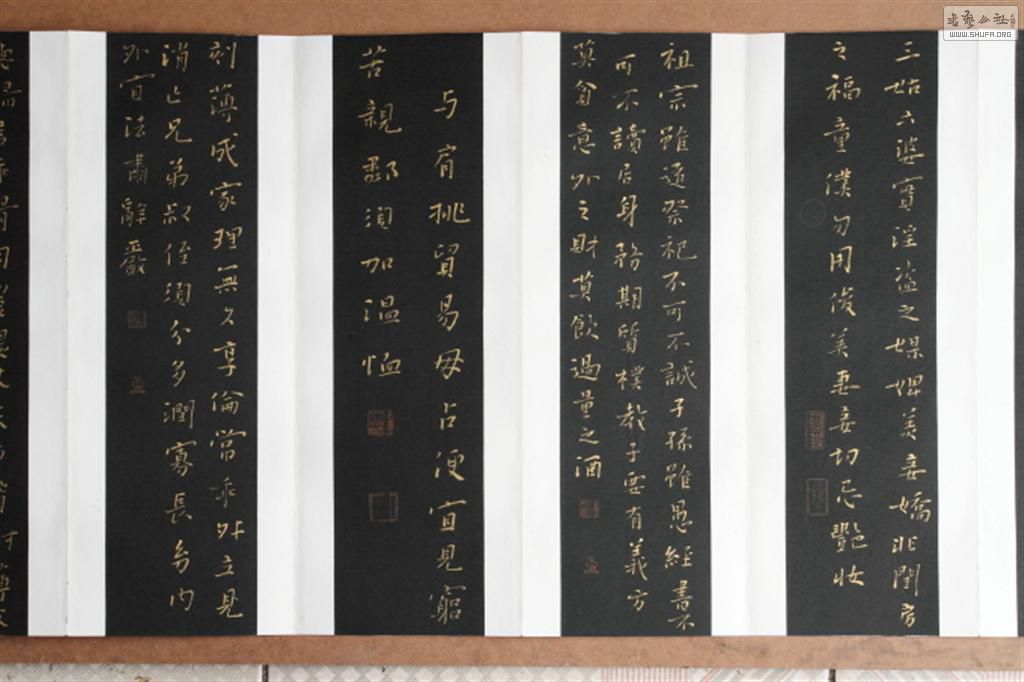 三姑六婆實淫盜之媒婢美妾嬌非閨房
之福童僕勿用俊美妻妾切忌艷妝
祖宗雖遠祭祀不可不誠子孫雖愚經書不
可不讀居身務期質樸教子要有義方
莫貪意外之財莫飲過量之酒
与肩挑貿易毋占便宜見窮
苦親鄰須加溫恤
刻薄成家理無久享倫常乖舛立見
消亡兄弟叔侄須分多潤寡長幼內
外宜法肅辭嚴
书艺公社
WWW.SHUFA.ORG